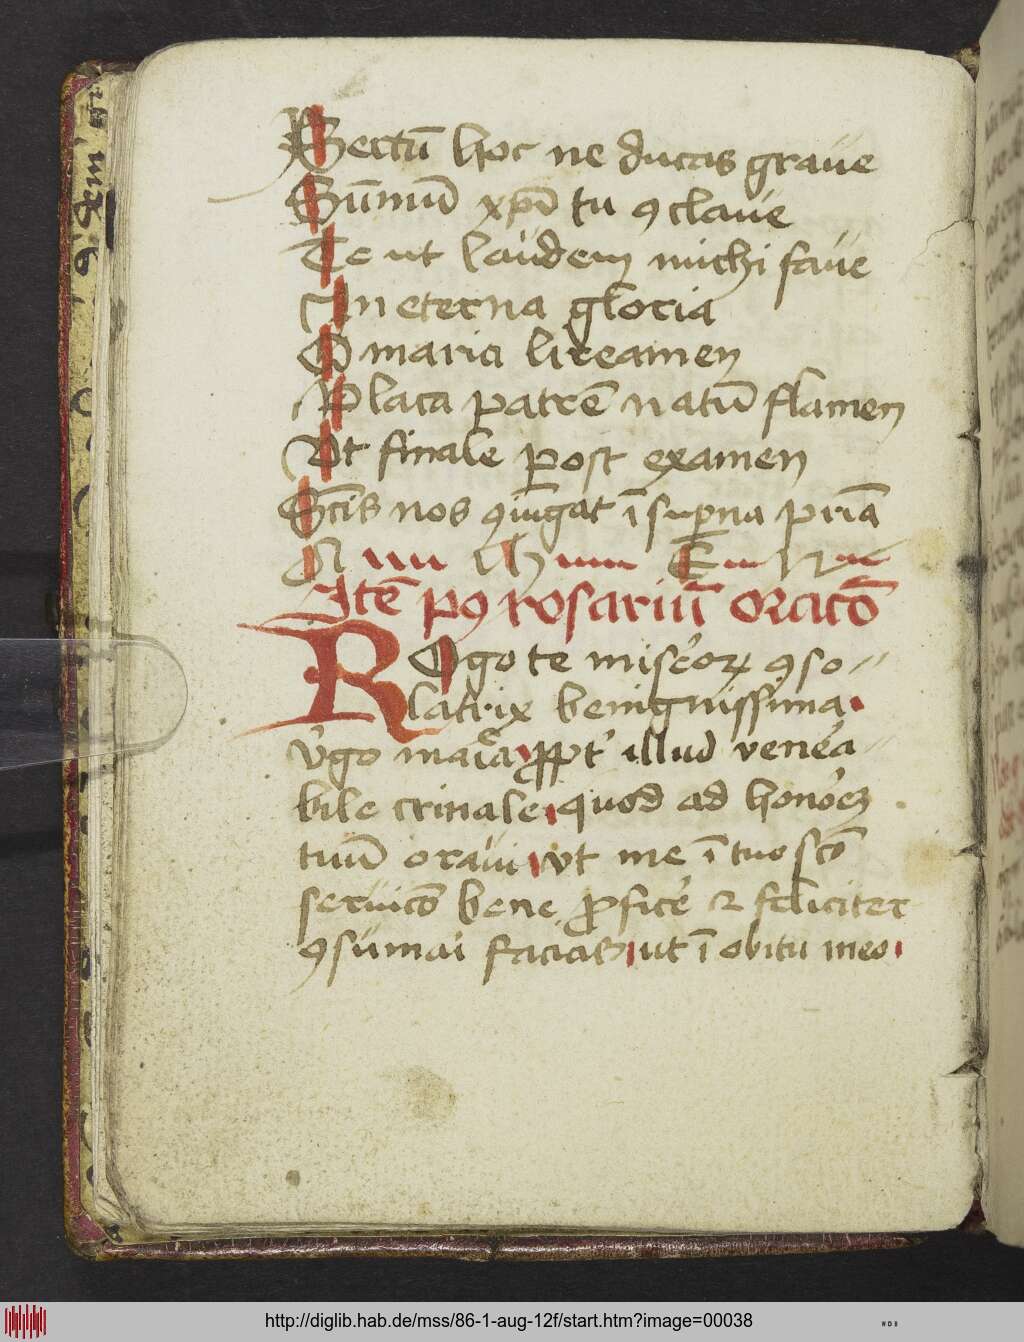 Sertū hoc ne ducas graue
Sūmū xpī tu ꝯclaue
Te ut laudem michi faue
In eterna gloria
O maria lireamen
Placa patrē natū flamen
Vt finale post examen
Sctīs nos ꝯiūgat ī suꝑna pr̄ia
A m e n
Itē pꝰ rosariū oracō
ROgo te misc̓oꝝ ꝯso⸗
latrix benignissima
v̓go maria ꝓpt̓ illud vene̓a⸗
bile crinale quod ad hono̓ez
tuū oraui vt me ī tuo scō
seruicō bene ꝓfice̓ ⁊ feliciter
ꝯsūmai facias ut ī obitu meo
http://diglib.hab.de/mss/86-1-aug-12f/start.htm?image=00038